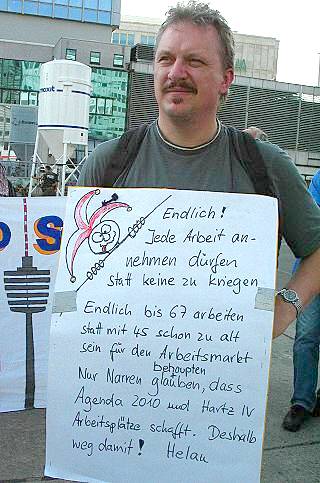 maxit
S
Endlich!
Jede Arbeit an-
nehmen dürfen
statt keine zu kriegen
Endlich bis 67 arbeiten
statt mit 45 schon zu alt
sein für den Arbeitsmarkt
behaupten
Nur Narren glauben, dass
Agenda 2010 und Hartz IV
Arbeitsplätze schafft. Deshalb
weg damit! Helau